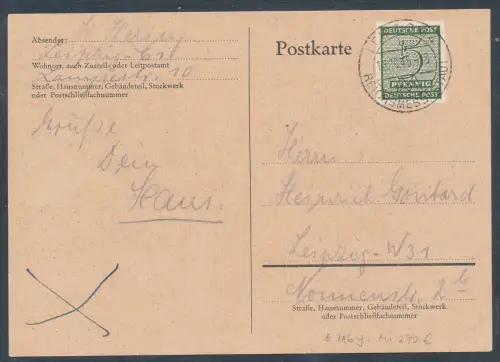 Absender: H. Herzog
Leipzig-C 1
Wohnort, auch Zustell- oder Leitpostamt
10
Straße, Hausnummer, Gebäudeteil, Stockwerk
oder Postschließfachnummer
Grüße
Dein
Hans.
Postkarte
DEUTSCHE POST
5
PFENNIG
DEUTSCHE POST
REICHSMESSESTADT
Herrn
Heinrich
Leipzig-W31
Nonnenstr. 2b
Straße, Hausnummer, Gebäudeteil, Stockwerk
oder Postschließfachnummer
Mi 290 €